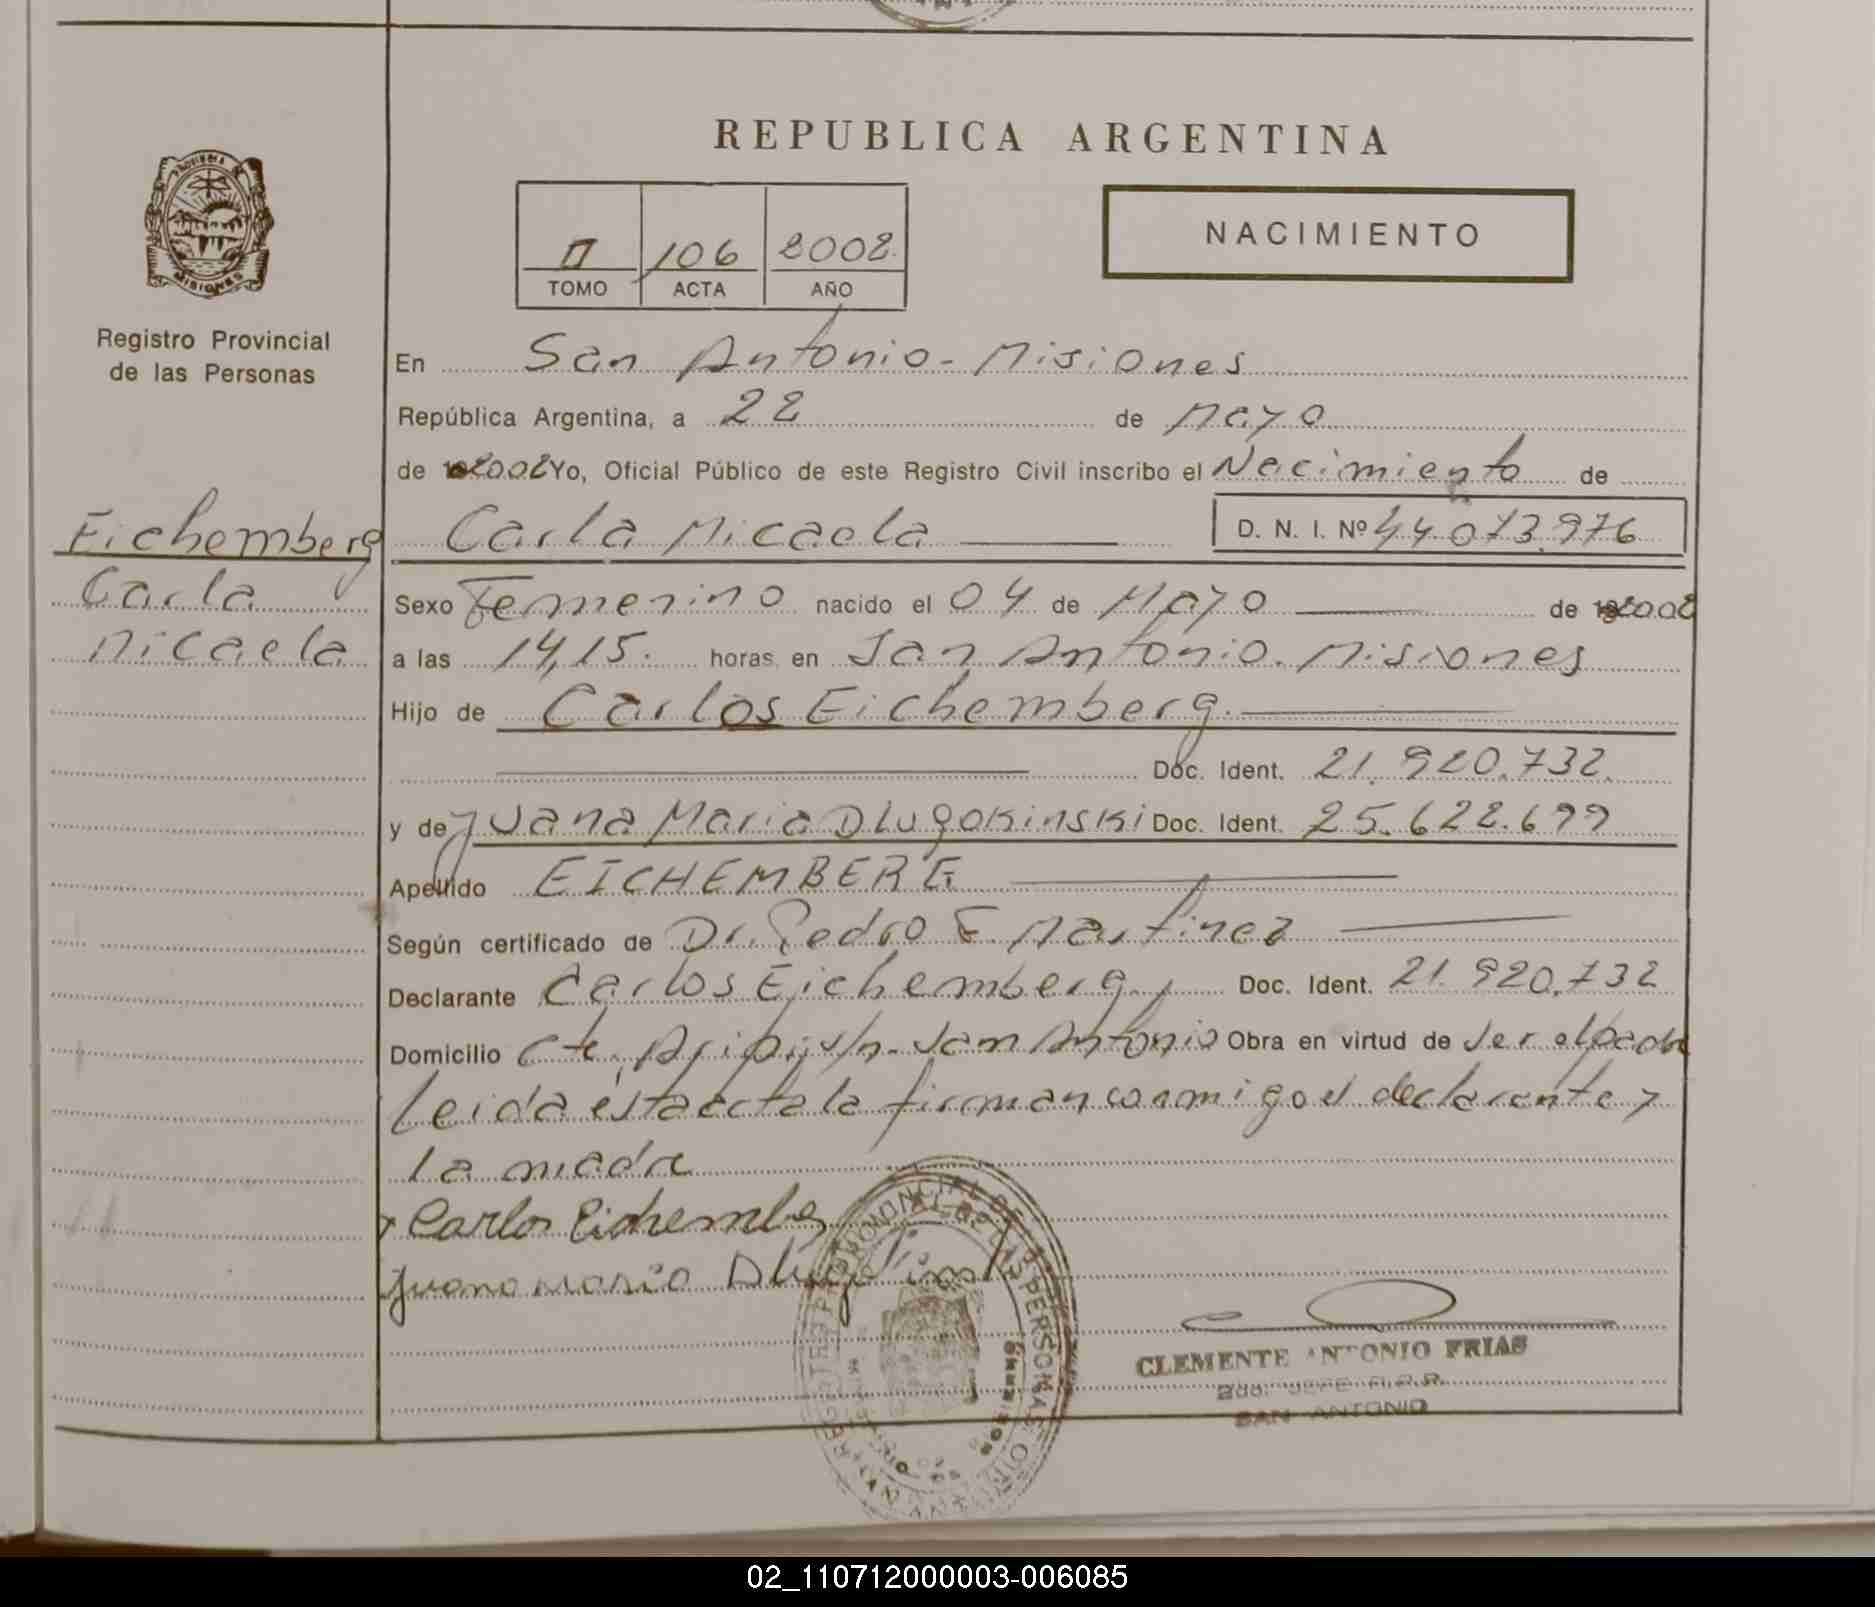 REPUBLICA ARGENTINA
PROVINCIA
MISIONES
Registro Provincial
de las Personas
II 106 2002
TOMO ACTA AÑO
NACIMIENTO
En San Antonio - Misiones
República Argentina, a 22 de Mayo
de 2002 Yo, Oficial Público de este Registro Civil inscribo el Nacimiento de
Eichemberg
Carla
Micaela
Carla Micaela
D. N. I. Nº 44.073.976
Sexo Femenino nacido el 04 de Mayo de 2002
a las 14,15. horas en San Antonio. Misiones
Hijo de Carlos Eichemberg
Doc. Ident. 21.920.732.
y de Juana Maria Dlugokinski Doc. Ident. 25.622.699
Apellido EICHEMBERG
Según certificado de Dr. Pedro E. Martinez
Declarante Carlos Eichemberg, Doc. Ident. 21.920.732
Domicilio Cte. s/n. San Antonio Obra en virtud de ser el padre
leida ésta acta la firman conmigo el declarante y
la madre
Carlos Eichembe
Juana Maria
REGISTRO PROVINCIAL DE LAS PERSONAS
CLEMENTE ANTONIO FRIAS
JEFE R.P.P.
SAN ANTONIO
02_110712000003-006085